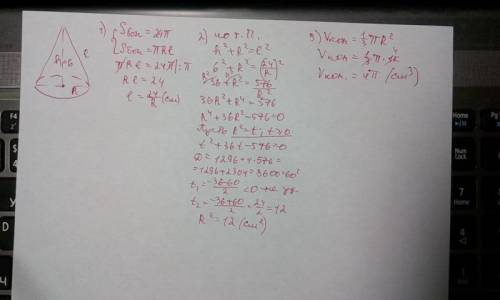 h=6
l
R
1) Sбок = 24π
Sбок = πRl
πRl = 24π | :π
Rl = 24
l = 24/R (см)
2) по т.П.
h² + R² = l²
6² + R² = (24/R)²
36 + R² = 576/R²
36R² + R⁴ = 576
R⁴ + 36R² - 576 = 0
Пусть R² = t, t > 0
t² + 36t - 576 = 0
D = 1296 + 4·576 =
= 1296 + 2304 = 3600 = 60²
t₁ = (-36-60)/2 < 0 - не уд.
t₂ = (-36+60)/2 = 24/2 = 12
R² = 12 (см²)
3) Vкон. = 1/3 πR²
Vкон. = 1/3 π·12 4
Vкон. = 4π (см³)
Home
PgUp
Num Lock
7 Home
4